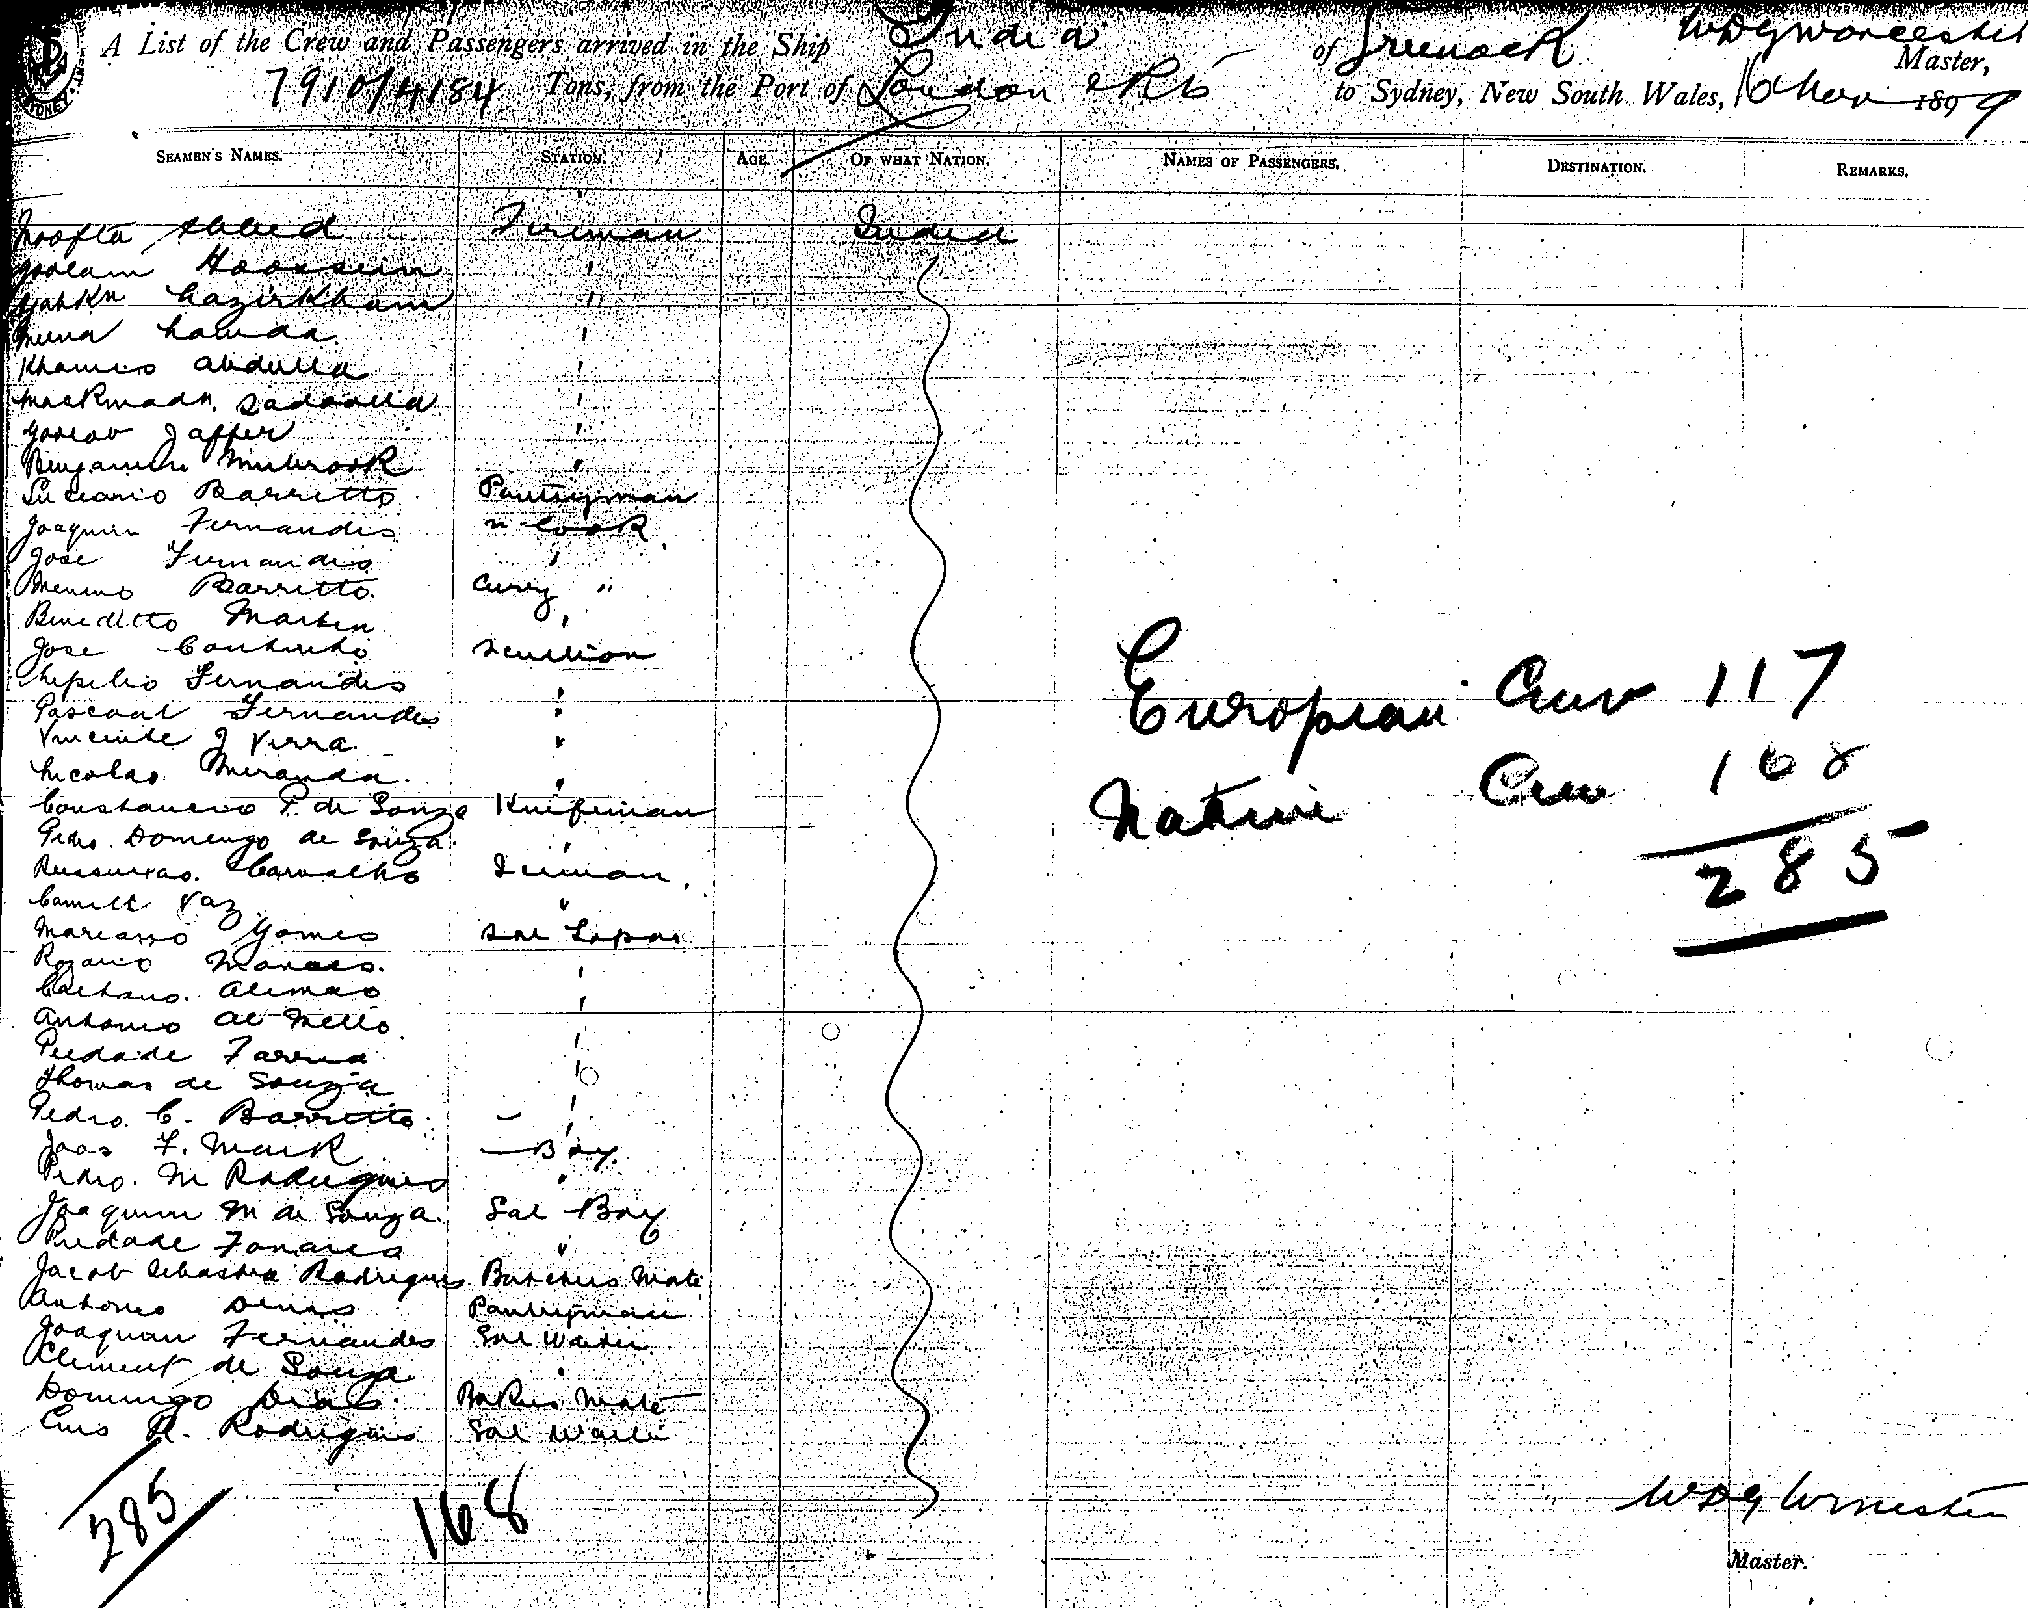 A List of the Crew and Passengers arrived in the Ship India of Greenock W D G Worcester Master,
7910/4184 Tons, from the Port of London & Pts to Sydney, New South Wales, 16 Nov 1899
SEAMEN'S NAMES. STATION. AGE. OF WHAT NATION. NAMES OF PASSENGERS. DESTINATION. REMARKS.
Moofta Fireman India
Goolam Hoossein "
Cazirkham "
"
Khamis Abdulla "
Sadoolla "
Jaffer "
Benjamin Mubrook "
Luciano Barretto Pantryman
Joaquin Fernandis " Cook
Jose Fernandis "
Barretto Curry "
Benedetto Marten "
Jose Coutinho Scullion
Fernandes "
Pascoal Fernandes "
Vincente J "
Nicolao Miranda "
Constancio P. de Souza Knifeman
Pedro Domengo de Souza "
Carvalho
Camill Vaz "
Mariano Gomes Sal Topas
Rozario Moraes "
Caetano Alemao "
Antonio de Mello "
Piedade Faria "
Thomas de Souza "
Pedro C. Barretto "
Joao F. Boy
Pedro M Rodrigues "
Joaquim M de Souza Sal Boy
Piedade Fonseca "
Jacob Sebastia Rodrigues Butchers Mate
Antonio Denis Pantryman
Joaquim Fernandes Sal Waiter
Clement de Souza "
Domingo Dias Bakers Mate
Luis R. Rodrigues Sal Waiter
European Crew 117
Native Crew 168
285
285 168
W D G Worcester
Master.